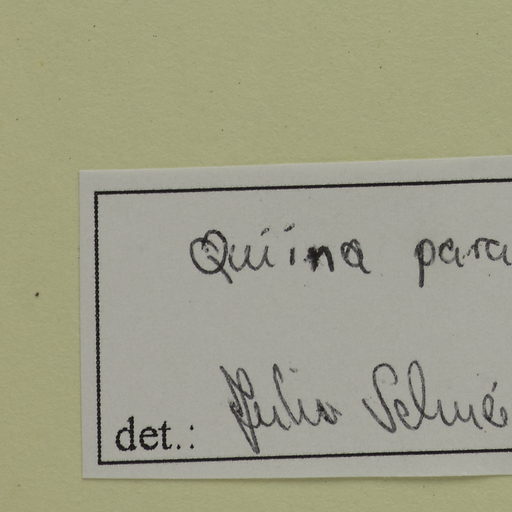 Quiina para
det.: Julio Schne